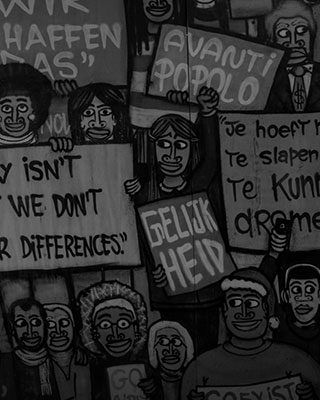 WIR
SCHAFFEN
DAS"
AVANTI
POPOLO
NOW
Y ISN'T
WE DON'T
R DIFFERENCES."
"Je hoeft
Te slapen
Te Kunn
drome
GELIJK
HEID
GO
COEXIST